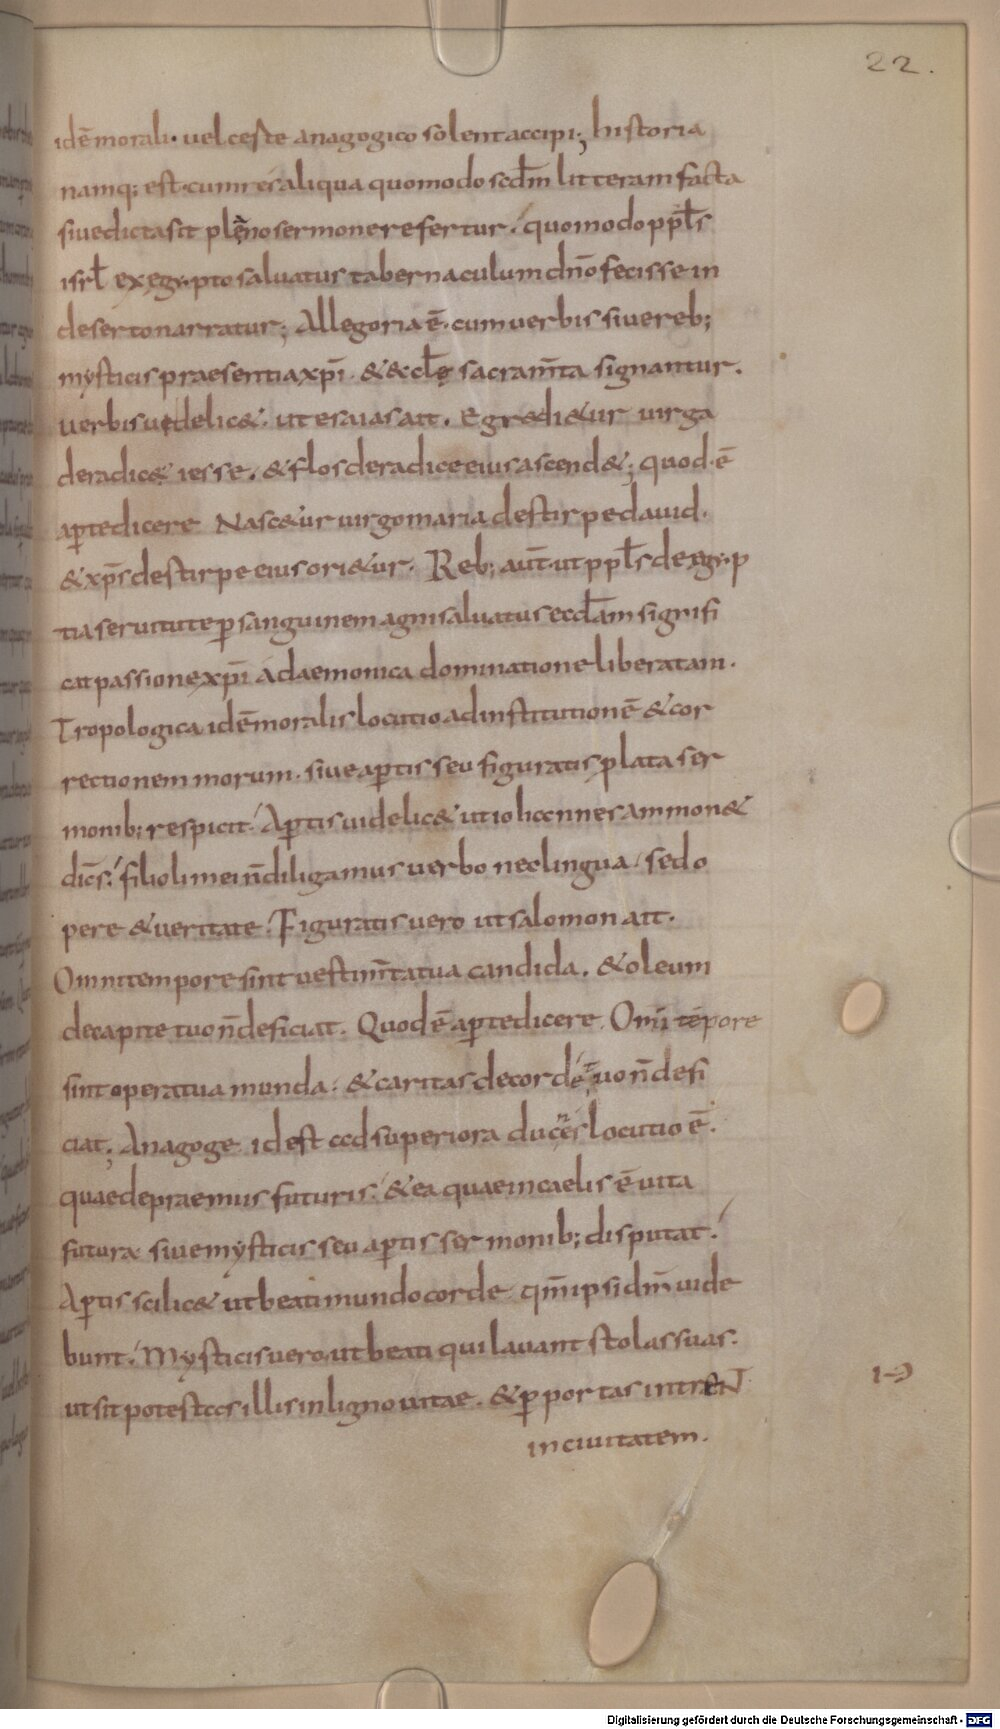 22.
idē morali. uel celeste anagogico solent accipi; historia
namq; est. cum res aliqua quomodo scdm litteram facta
siue dicta sit pleno sermone refertur. quomodo ppls
isrl ex egypto saluatus tabernaculum dnō fecisse in
deserto narratur; Allegoria ē. cum uerbis siue reb;
mysticis praesentia xpi. & eclę sacramta signantur.
uerbis uidelic&. ut esaias ait. Egredi&ur uirga
deradice iesse. & flos deradice eius ascend&; quod ē
aptedicere Nasc&ur uirgo maria destirpe dauid.
& xps destirpe eius ori&ur. Reb; aut. ut ppls de egyp
tia seruitute p sanguinem agni saluatus eccłam signifi
cat passione xpi a daemonica dominatione liberatam.
Tropologica idē moralis locutio ad institutionē & cor
rectionem morum. siue aptis seu figuratis plata ser
monib; respicit. Aptis uidelic& ut iohannes ammon&
dics. filioli mei n diligamus uerbo neclingua. sed o
pere & ueritate. Figuratis uero ut salomon ait.
Omni tempore sint uestimta tua candida. & oleum
decapite tuo n deficiat. Quod ē aptedicere. Omi tēpore
sint opera tua munda. & caritas decorde tuo n defi
ciat; Anagoge. idest ad superiora ducens locutio ē.
quae depraemiis futuris. & ea quae in caelis ē uita
futura siue mysticis seu aptis sermonib; disputat.
Aptis scilic& ut beati mundo corde. qm ipsi dm uide
bunt. Mysticis uero. ut beati qui lauant stolas suas.
ut sit potestas illis in ligno uitae. & p portas intrent
in ciuitatem.
Digitalisierung gefördert durch die Deutsche Forschungsgemeinschaft - DFG